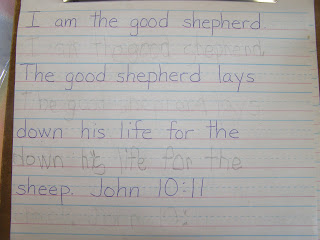 I am the good shepherd.
I am the good shepherd
The good shepherd lays
The good shepherd lays
down his life for the
down his life for the
sheep. John 10:11